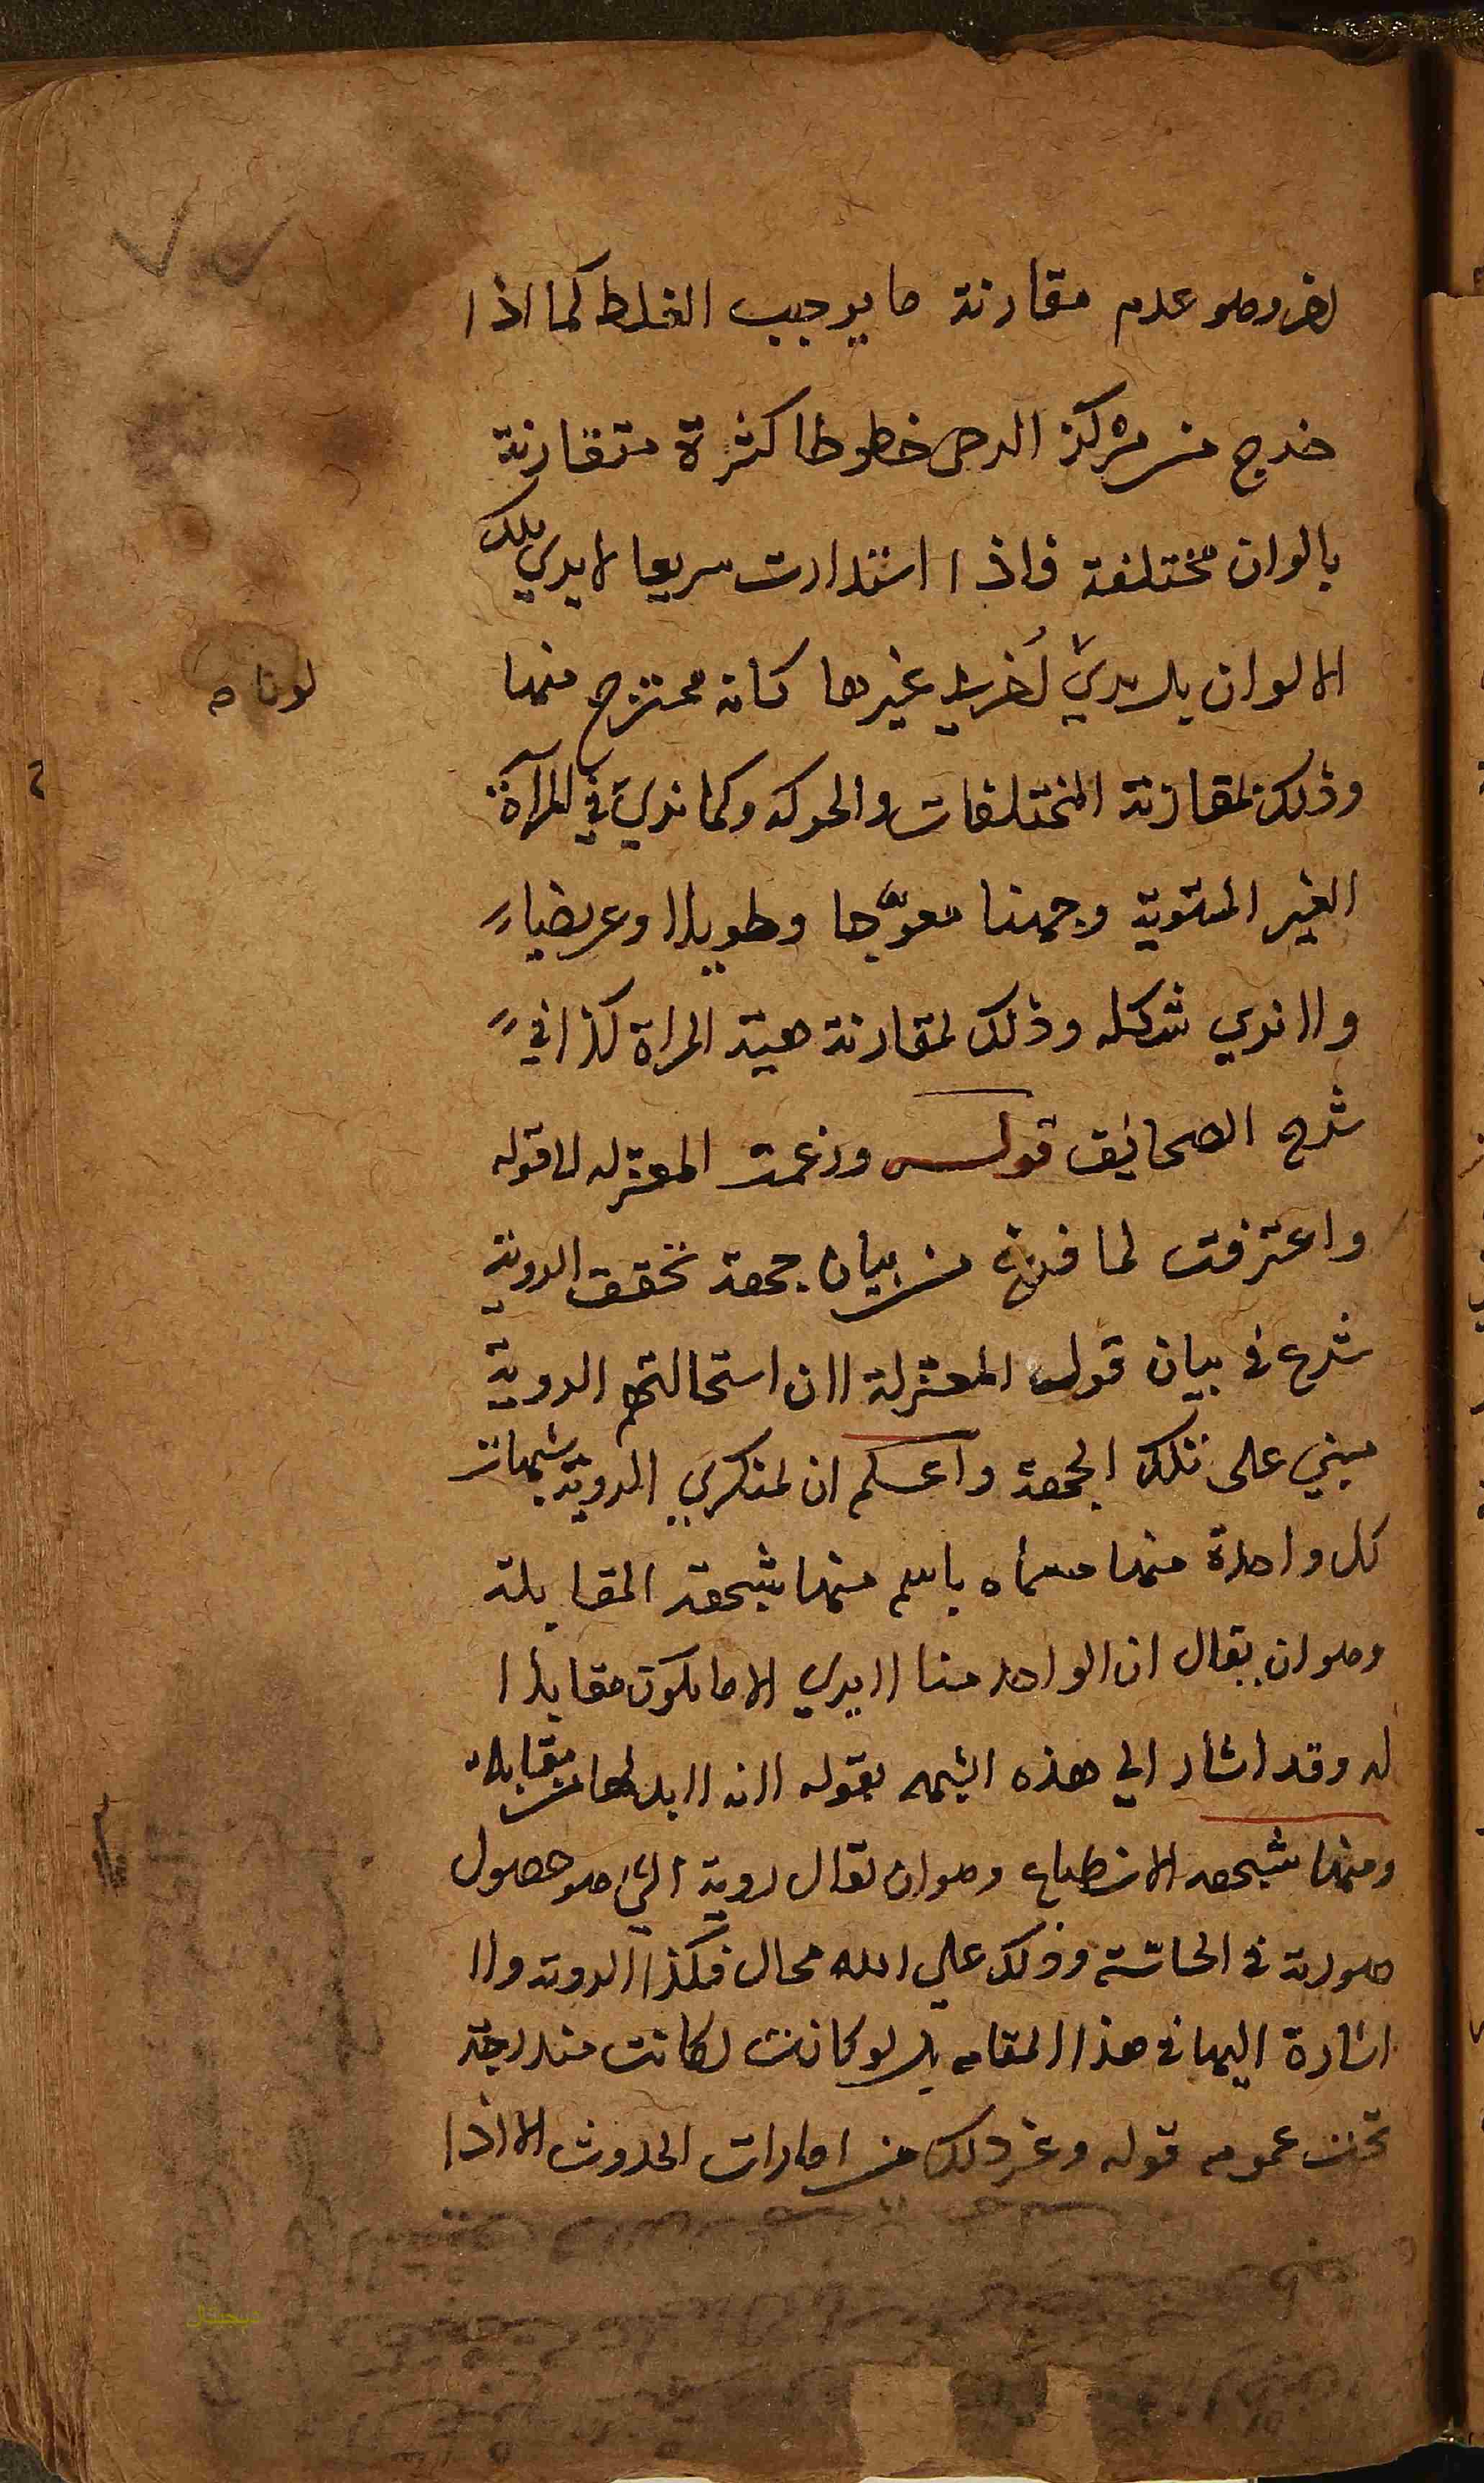 اخر وهو عدم مقارنة ما يوجب الغلط كما اذا
خرج من مركز الرحى خطوطا كثيرة متقارنة
بالوان مختلفة فاذا استدارت سريعا لا يري تلك
الالوان بل يري اخري غيرها كانه ممتزج منها
لونا صح
وذلك لمقارنة المختلفات والحركه وكما نري في المرآة
الغير المستوية وجهنا معوّجا وطويلا وعريضا
ولا نري شكله وذلك لمقارنة هيئة المراة كذا في
شرح الصحائف قوله وزعمت المعتزله الا قوله
واعترفت لما فرغ من بيان جهة تحقق الروية
شرع في بيان قول المعتزلة لان استحالتهم الروية
مبني على تلك الجهة واعلم ان لمنكري الروية شبهات
كل واحدة منها مسماه باسم منها شبهة المقابلة
وهو ان يقال ان الواحد منا لا يري الا ما يكون مقابلا
له وقد اشار الي هذه الشبهه بقوله لانه لا بد لها من مقابلة
ومنها شبهه الانطباع وهو ان يقال روية الشئ هو حصول
صورته في الحاسّة وذلك على الله محال فكذا الروية ولا
اشارة اليها في هذا المقام بل لو كانت لكانت مندرجة
تحت عموم قوله وغير ذلك من امارات الحدوث الا اذا